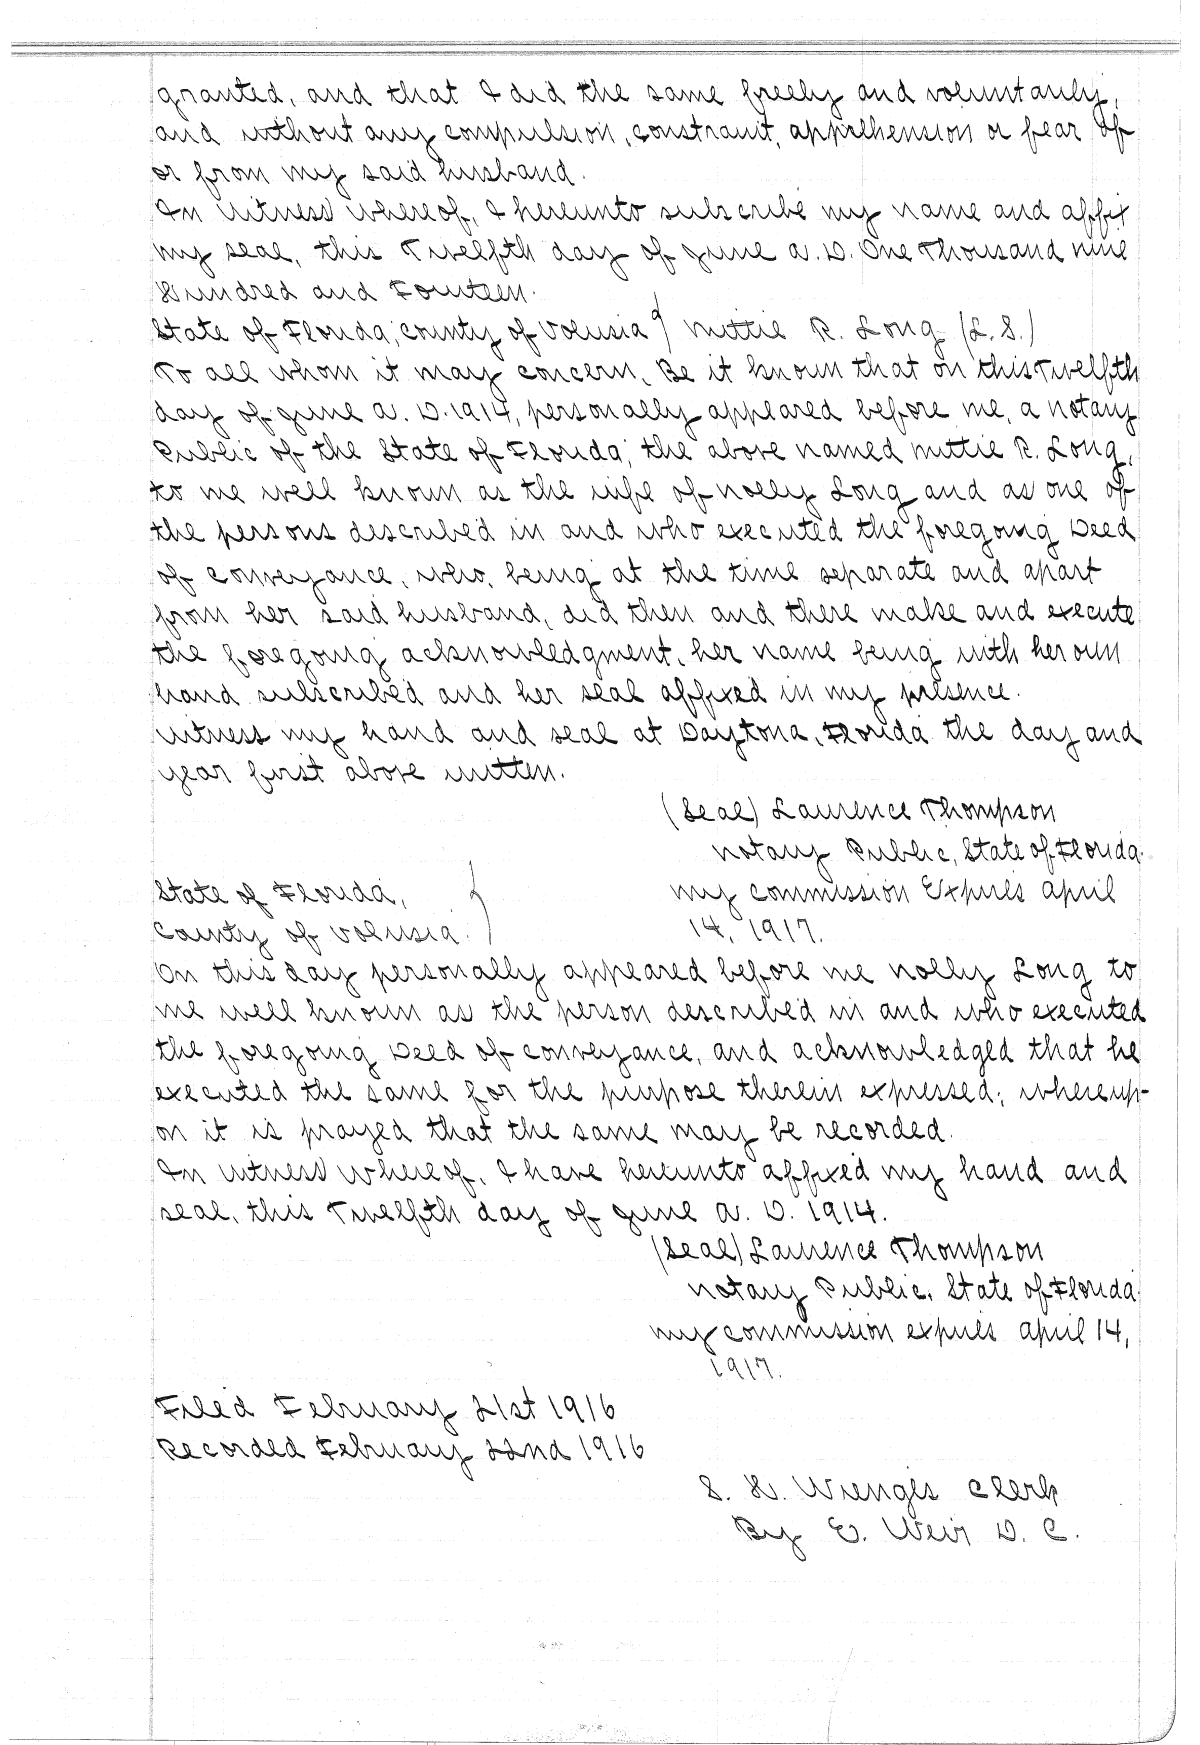 granted, and that I did the same freely and voluntarily,
and without any compulsion, constraint, apprehension or fear of
or from my said husband.
In Witness whereof, I hereunto subscribe my name and affix
my seal, this Twelfth day of June A. D. One Thousand nine
Hundred and Fourteen.
State of Florida, County of Volusia } Mittie R. Long (L. S.)
To all whom it may concern, Be it known that on this Twelfth
day of June A. D. 1914, personally appeared before me, a Notary
Public of the State of Florida, the above named Mittie R. Long,
to me well known as the wife of Nolly Long and as one of
the persons described in and who executed the foregoing Deed
of Conveyance, who, being at the time separate and apart
from her said husband, did then and there make and execute
the foregoing acknowledgment, her name being with her own
hand subscribed and her seal affixed in my presence.
Witness my hand and seal at Daytona, Florida the day and
year first above written.
(Seal) Laurence Thompson
Notary Public, State of Florida.
State of Florida, } My commission Expires April
County of Volusia. 14, 1917.
On this day personally appeared before me Nolly Long to
me well known as the person described in and who executed
the foregoing Deed of Conveyance, and acknowledged that he
executed the same for the purpose therein expressed; whereup-
on it is prayed that the same may be recorded.
In Witness Whereof, I have hereunto affixed my hand and
seal, this Twelfth day of June A. D. 1914.
(Seal) Laurence Thompson
Notary Public, State of Florida.
My commission expires April 14,
1917.
Filed February 21st 1916
Recorded February 22nd 1916
S. D. Clerk
By E. Weir D. C.